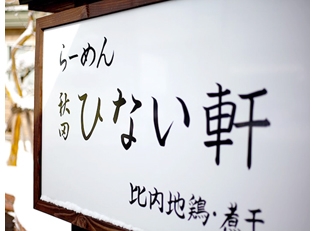 らーめん
秋田ひない軒
比内地鶏・煮干